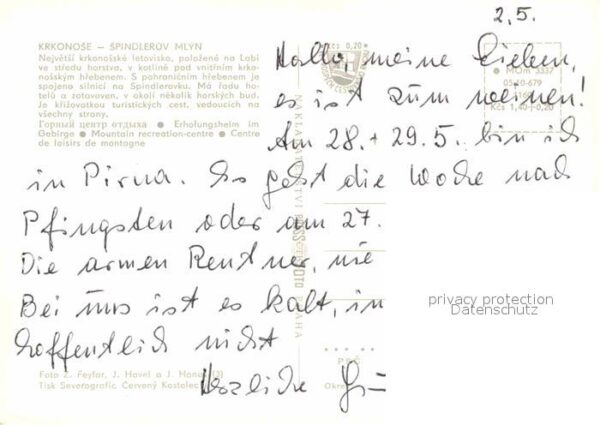 2.5.
KRKONOŠE — ŠPINDLERŮV MLÝN
Největší krkonošské letovisko, položené na Labi
ve středu horstva, v kotlině pod vnitřním krko-
nošským hřebenem. S pohraničním hřebenem je
spojeno silnicí na Špindlerovku. Má řadu ho-
telů a zotavoven, v okolí několik horských bud.
Je křižovatkou turistických cest, vedoucích na
všechny strany.
Горный центр отдыха ● Erholungsheim im
Gebirge ● Mountain recreation-centre ● Centre
de loisirs de montagne
Kčs 0,20
MOm 3337
05-10-679
Kčs 1,40+0,20
Hallo, meine Lieben,
es ist zum weinen!
Am 28. + 29.5. bin ich
in Pirna. So geht die Woche nach
Pfingsten oder am 27.
Die armen Rentner, nie
Bei uns ist es kalt, in
hoffentlich nicht
Herzliche
NAKLADATELSTVÍ PRESSFOTO PRAHA
privacy protection
Datenschutz
PSČ
Okres
Foto Z. Feyfar, J. Havel a J. Hanuš (3)
Tisk Severografie Červený Kostelec